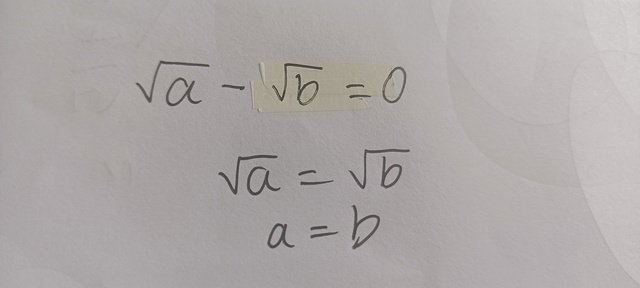 √a - √b = 0
√a = √b
a = b